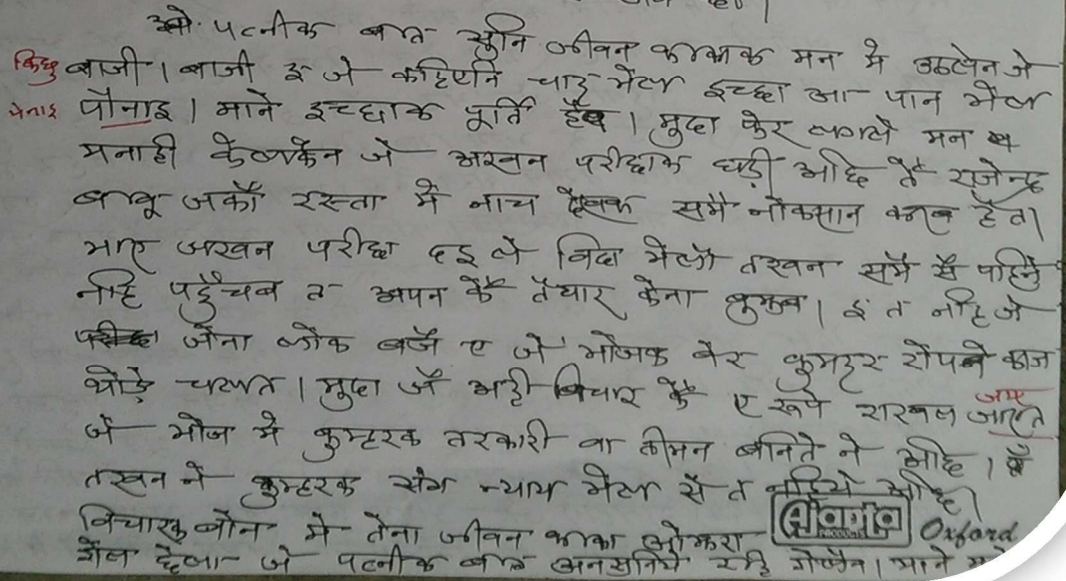 ओ. पत्नीक बात सुनि जीवन काकाक मन मे उठलैन जे
किछु बाजी । बाजी इ जे कहिएनि चाह भेल इच्छा आ पान भेल
पेनाइ पौनाइ । माने इच्छाक पूर्ति हैब । मुदा फेर लगले मन
मनाही केलकैन जे अखन परीक्षाक घड़ी अछि तैं राजेन्द्र
बाबू जकाँ रस्ता मे नाच देखब समै नोकसान करब हैत।
भाए जखन परीक्षा दइ ले विदा भेलौं तखन समै सँ पहिने
नहि पहुँचब त अपन कें तैयार केना बुझब । इ त नहि जे
जेना लोक बजै ए जे भोजक बेर कुम्हर रोपने काज
थोड़े चलत । मुदा जँ अही विचार कें ए रूपे राखल जाए जाएत
जे भोज मे कुम्हरक तरकारी वा तीमन बनिते ने अछि ।
तखन ने कुम्हरक संग न्याय भेल से त नहिये अछि।
विचारक बोन मे तेना जीवन काका ओझरा
गेल छला जे पत्नीक बात अनसुनिये रहि गेलैन। माने
Ajanta Oxford